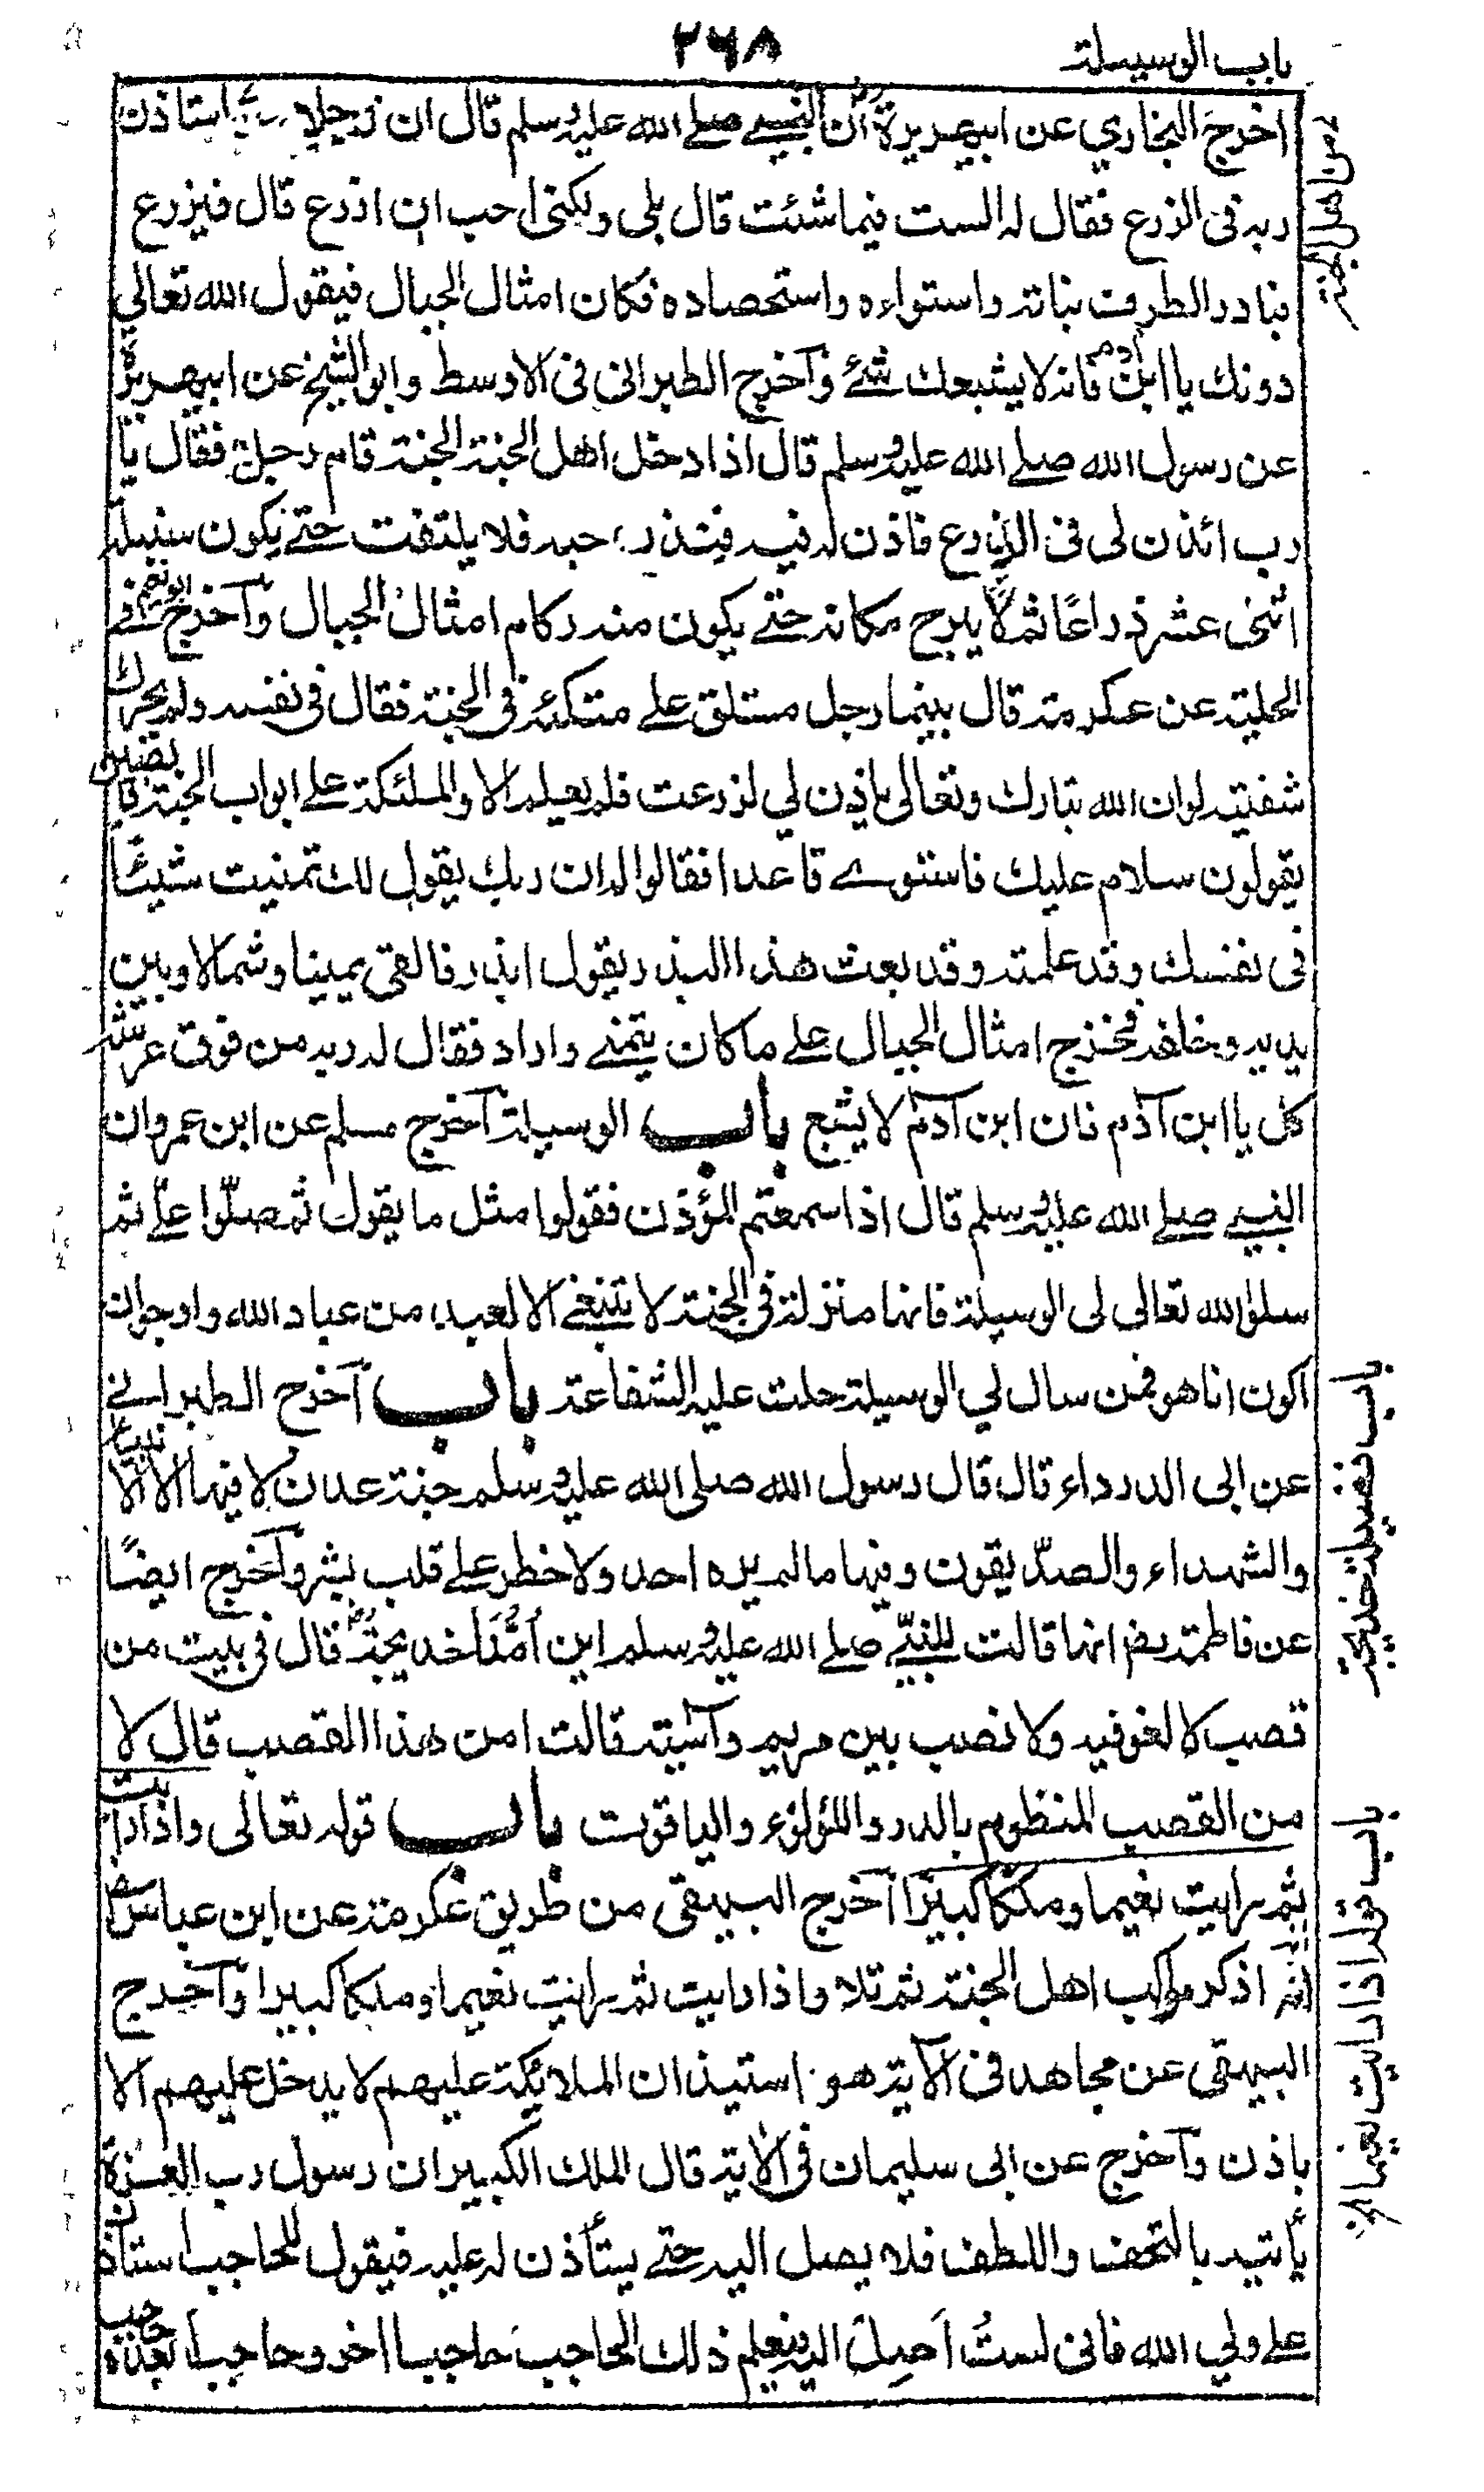 ٢٦٨
باب الوسيلة
اخرج البخاري عن ابيهريرة رض ان النبي صلے الله عليه وسلم قال ان رجلا استاذن
من اهل الجنة
ربه فى الزرع فقال له الست فيما شئت قال بلى ولكنى احب ان ازرع قال فيزرع
فبادر الطرف نباته واستواءه واستحصاده فكان امثال الجبال فيقول الله تعالى
دونك يا ابن آدم فانه لا يشبعك شئ وآخرج الطبرانى فى الاوسط وابو الشيخ عن ابيهريرة
عن رسول الله صلے الله عليه وسلم قال اذا دخل اهل الجنة الجنة قام رجل فقال يا
رب ائذن لى فى الزرع فاذن له فيه فيبذر حبه فلا يلتفت حتے يكون سنبله
اثنى عشر ذراعًا ثم لا يبرح مكانه حتے يكون منه ركام امثال الجبال وآخرج ابو نعيم فے
الحلية عن عكرمة قال بينما رجل مستلق علے متكئه فى الجنة فقال فى نفسه ولم يحرك
شفتيه لو ان الله تبارك وتعالى ياذن لي لزرعت فلم يعلم الا والملئكة علے ابواب الجنة قابضين
يقولون سلام عليك فاستوے قاعدا فقالوا له ان ربك يقول لك تمنيت شيئًا
فى نفسك وقد علمته وقد بعث هذا البذر يقول ابذر فالقى يمينا وشمالا وبين
يديه وخلفه فخرج امثال الجبال علے ما كان يتمنے واراد فقال له ربه من فوق عرشه
كل يا ابن آدم فان ابن آدم لا يشبع باب الوسيلة آخرج مسلم عن ابن عمرو ان
النبي صلے الله عليه وسلم قال اذا سمعتم المؤذن فقولوا مثل ما يقول ثم صلّوا علىّ ثم
سلوا الله تعالى لى الوسيلة فانها منزلة فى الجنة لا ينبغے الا لعبد من عباد الله وارجو ان
اكون انا هو فمن سال لي الوسيلة حلت عليه الشفاعة باب آخرج الطبرانے
عن ابى الدرداء قال قال رسول الله صلى الله عليه وسلم جنة عدن لا فيها الا الانبياء
والشهداء والصدّيقون وفيها ما لم يره احد ولا خطر علے قلب بشر وآخرج ايضًا
عن فاطمة رض انها قالت للنبيّ صلے الله عليه وسلم اين اُمُّنا خديجة رض قال فى بيت من
قصب لا لغو فيه ولا نصب بين مريم وآسية قالت امن هذا القصب قال لا
من القصب المنظوم بالدر واللؤلؤء والياقوت باب قوله تعالى واذا رايت
ثم رايت نعيما وملكا كبيرًا آخرج البيهقى من طريق عكرمة عن ابن عباس رض
انه اذكر مواكب اهل الجنة ثم تلا واذا رايت ثم رايت نعيما وملكا كبيرا وآخرج
البيهقى عن مجاهد فى الآية هو استيذان الملائكة عليهم لا يدخل عليهم الا
باذن وآخرج عن ابى سليمان فى الاية قال الملك الكبير ان رسول رب العزة
يأتيه بالتحف واللطف فلا يصل اليه حتے يستأذن له عليه فيقول للحاجب استاذن
علے ولي الله فانى لستُ اَصِلُ اليه فيعلم ذلك الحاجب حاجبا اخر وحاجبا بعده حاجب
باب فضيلة خديجة
باب قوله اذا رايت نعيما الخ